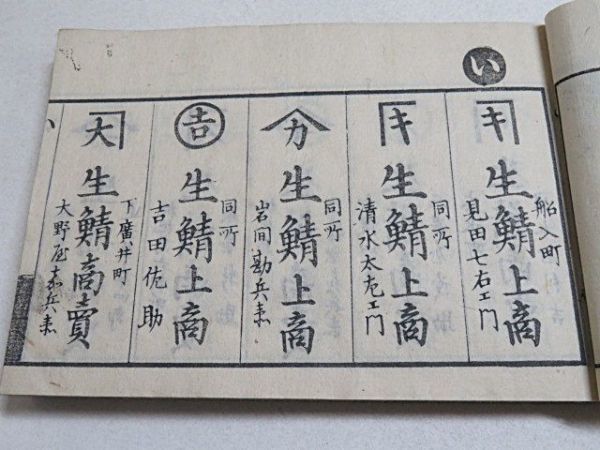 い
キ
生鯖上商
船入町
見田七右エ門
キ
生鯖上商
同所
清水太左エ門
カ
生鯖上商
同所
岩間勘兵衛
吉
生鯖上商
同所
吉田佐助
大
生鯖商賣
下廣井町
大野屋嘉兵衛